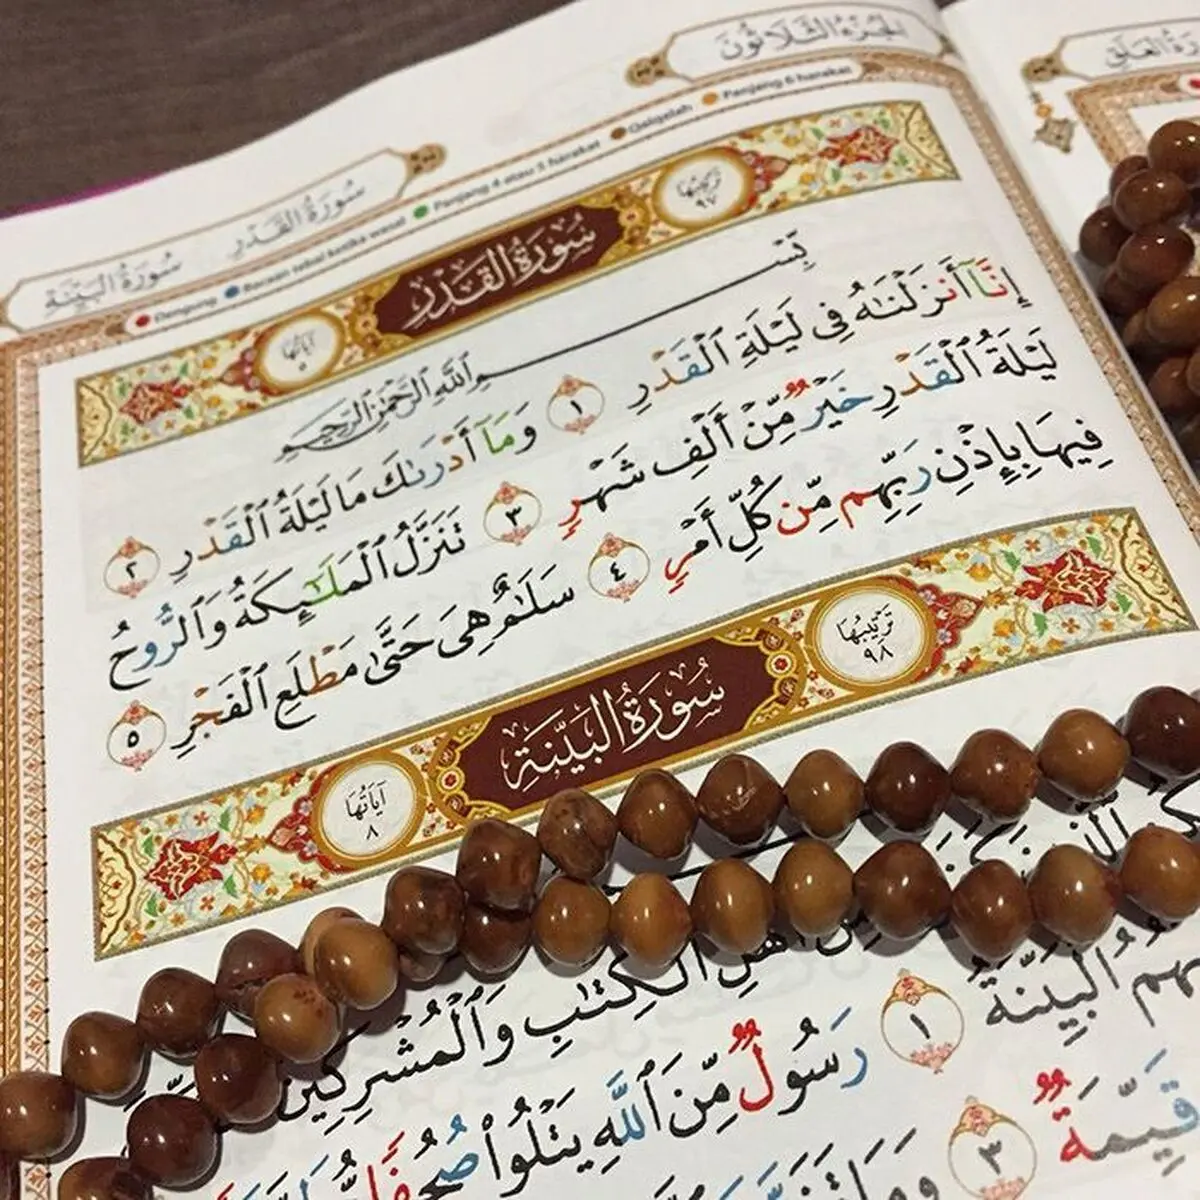 الجزء الثلاثون
سورة القدر
سورة البينة
Dengung
Bacaan tebal ketika wasal
Panjang 4 atau 5 harakat
Qalqalah
Panjang 6 harakat
ترتيبها
٩٧
سُورَةُ القَدْرِ
آياتها
٥
بِسْمِ اللَّهِ الرَّحْمَٰنِ الرَّحِيمِ
إِنَّآ أَنزَلْنَٰهُ فِى لَيْلَةِ ٱلْقَدْرِ ١ وَمَآ أَدْرَىٰكَ مَا لَيْلَةُ ٱلْقَدْرِ ٢
لَيْلَةُ ٱلْقَدْرِ خَيْرٌ مِّنْ أَلْفِ شَهْرٍ ٣ تَنَزَّلُ ٱلْمَلَٰٓئِكَةُ وَٱلرُّوحُ
فِيهَا بِإِذْنِ رَبِّهِم مِّن كُلِّ أَمْرٍ ٤ سَلَٰمٌ هِىَ حَتَّىٰ مَطْلَعِ ٱلْفَجْرِ ٥
تَرْتِيبُهَا
٩٨
سُورَةُ البَيِّنَةِ
آيَاتُهَا
٨
ٱلْكِتَٰبِ وَٱلْمُشْرِكِينَ
ٱلْبَيِّنَةُ ١ رَسُولٌ مِّنَ ٱللَّهِ يَتْلُوا۟ صُحُفًا
قَيِّمَةٌ ٣ وَمَا